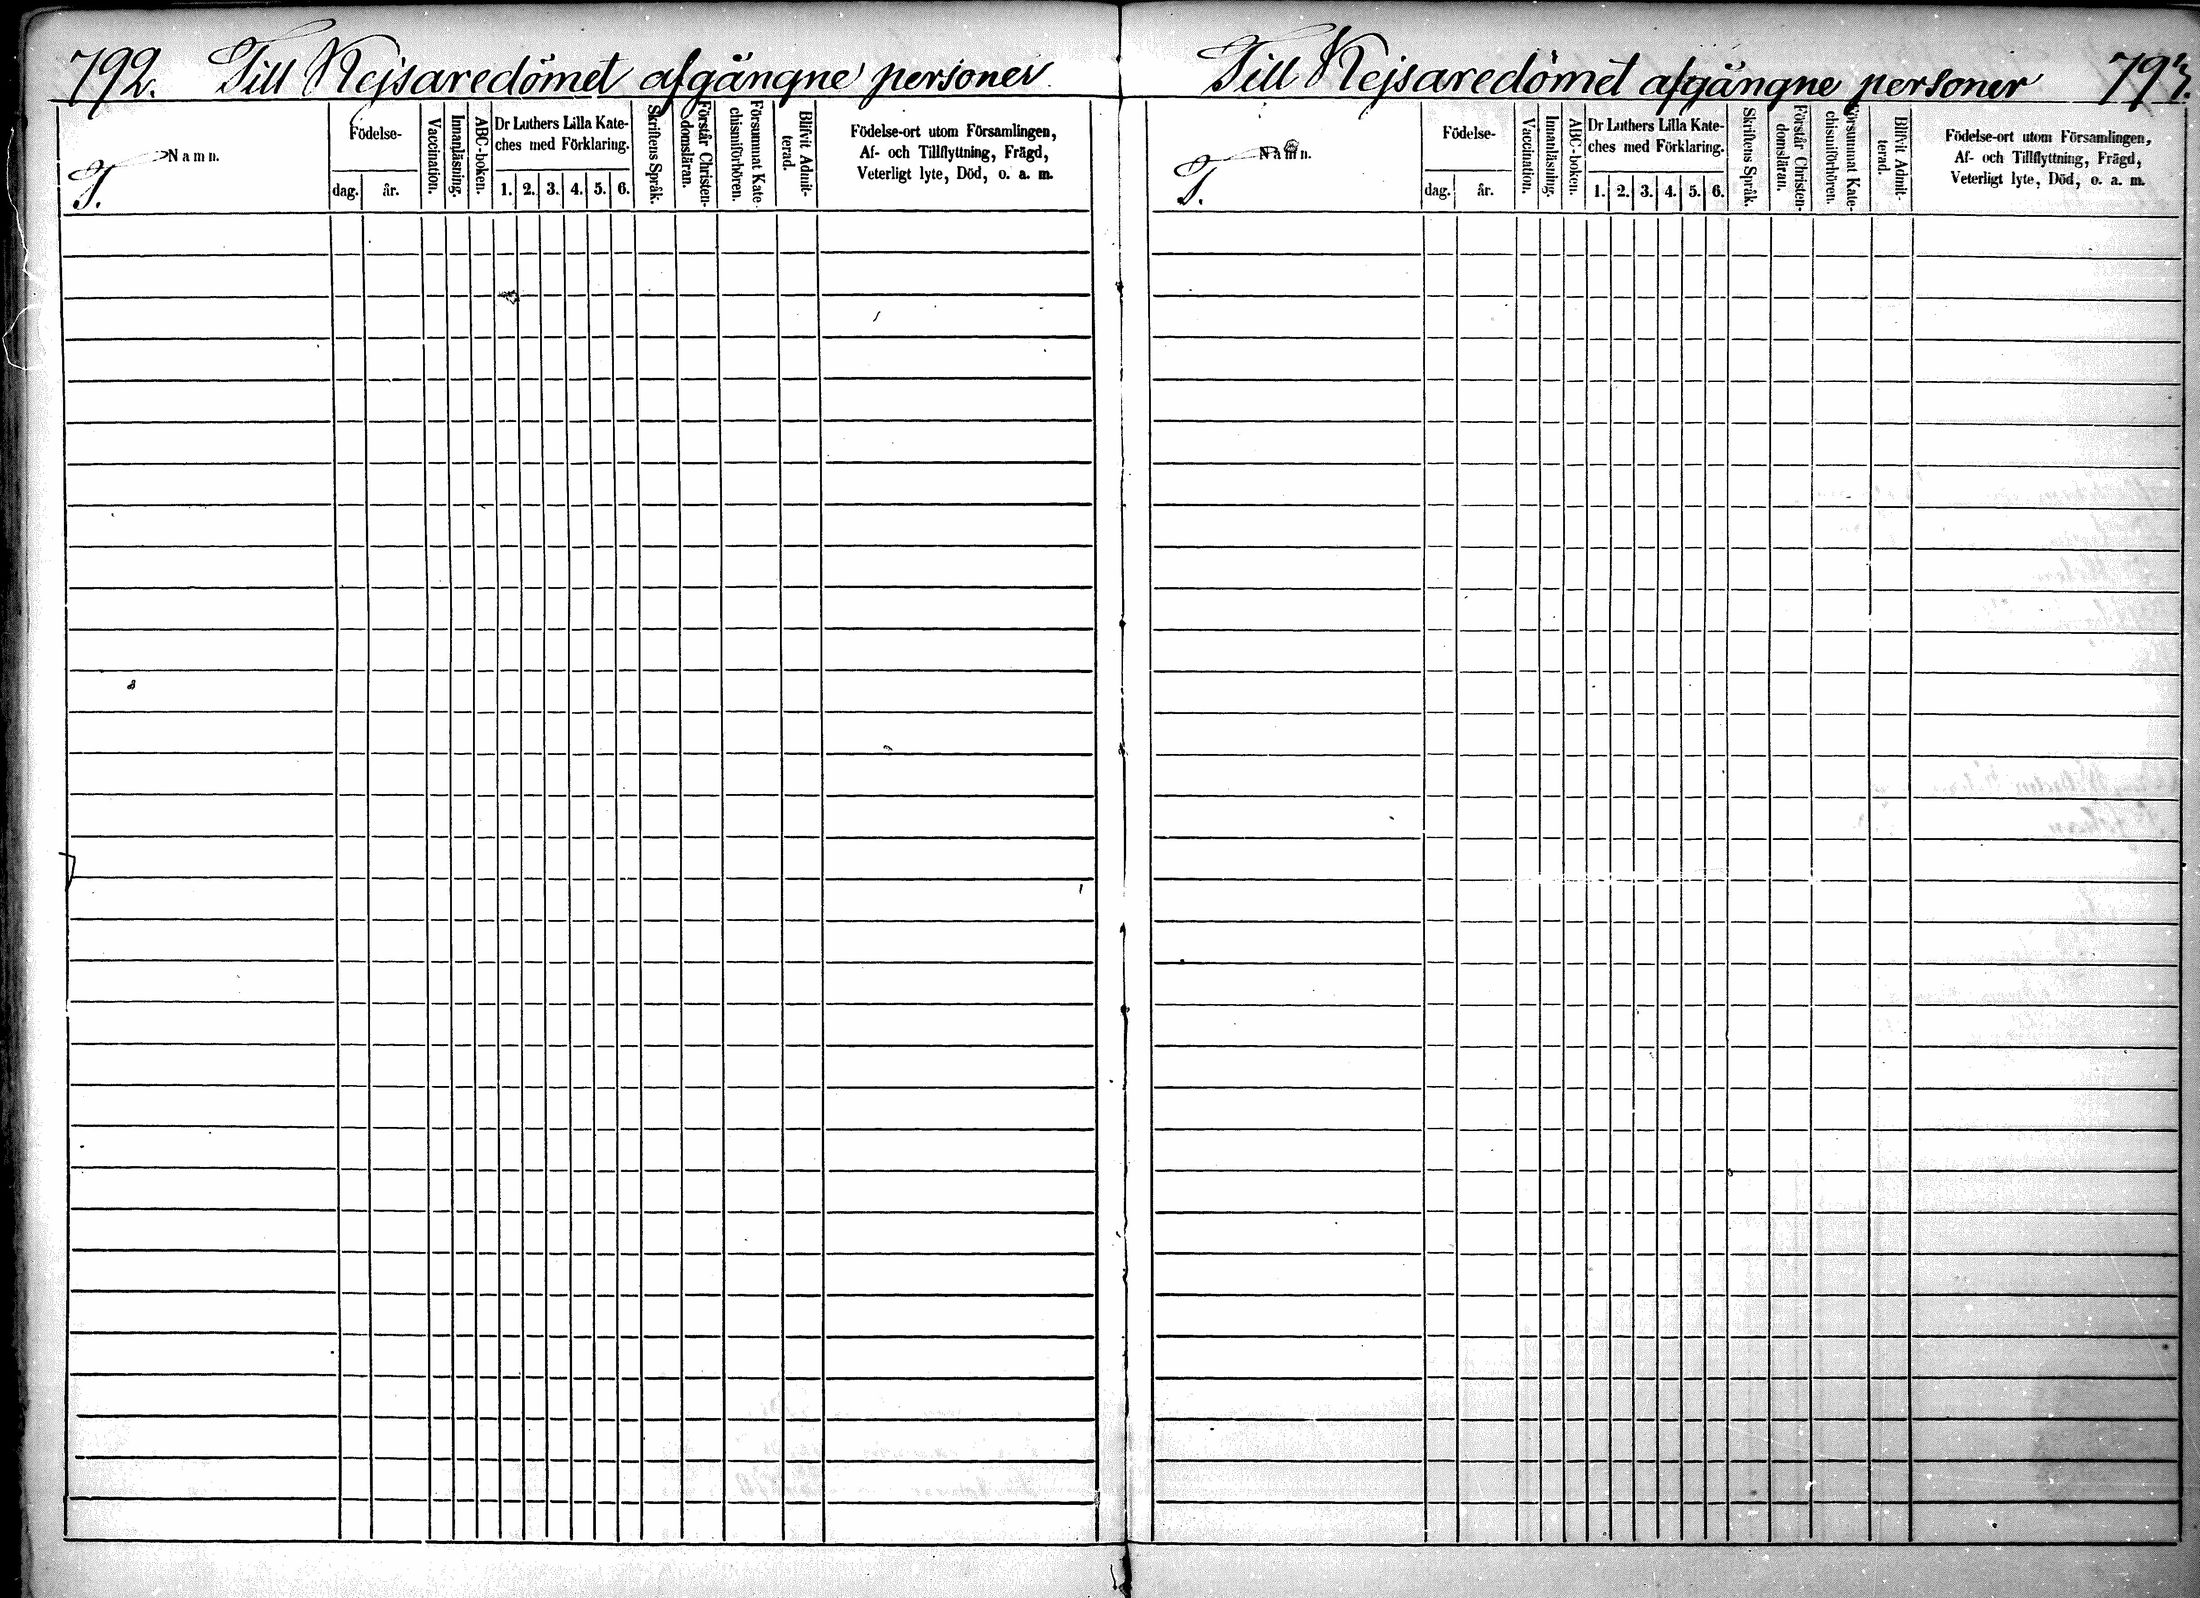 792. Till Kejsaredömet afgångne personer
T.
Namn.
Födelse-
dag. år.
Vaccination.
Innanläsning.
ABC-boken.
Dr Luthers Lilla Kate-
ches med Förklaring.
1. 2. 3. 4. 5. 6.
Skriftens Språk.
Förstår Christen-
domsläran.
Försummat Kate-
chismiförhören.
Blifvit Admit-
terad.
Födelse-ort utom Församlingen,
Af- och Tillflyttning, Frägd,
Veterligt lyte, Död, o. a. m.
Till Kejsaredömet afgångne personer 793.
T.
Namn.
Födelse-
dag. år.
Vaccination.
Innanläsning.
ABC-boken.
Dr Luthers Lilla Kate-
ches med Förklaring.
1. 2. 3. 4. 5. 6.
Skriftens Språk.
Förstår Christen-
domsläran.
Försummat Kate-
chismiförhören.
Blifvit Admit-
terad.
Födelse-ort utom Församlingen,
Af- och Tillflyttning, Frägd,
Veterligt lyte, Död, o. a. m.